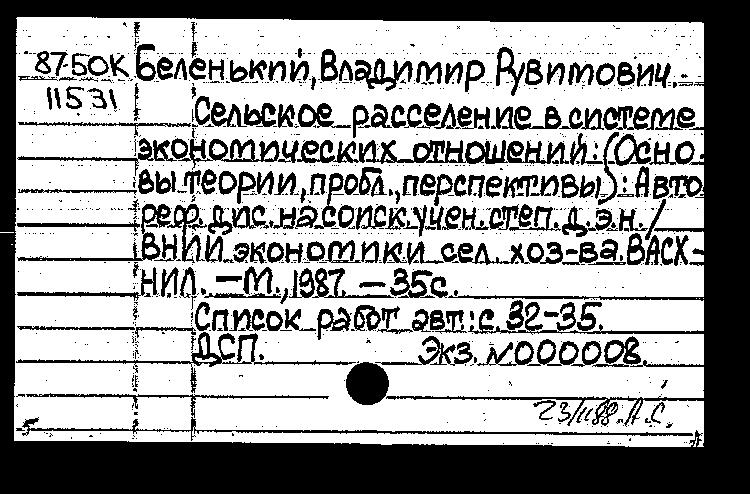 87-5OK Беленький, Владимир Рувимович.
11531
Сельское расселение в системе
экономических отношений: (Осно-
вы теории, пробл., перспективы): Авто
реф. дис. на соиск. учен. степ. д. э. н. /
ВНИИ экономики сел. хоз-ва. ВАСХ-
НИЛ. — М., 1987. — 35с.
Список работ авт.: с. 32-35.
ДСП. Экз. №000008.
23/II 88. А.С.
5 А